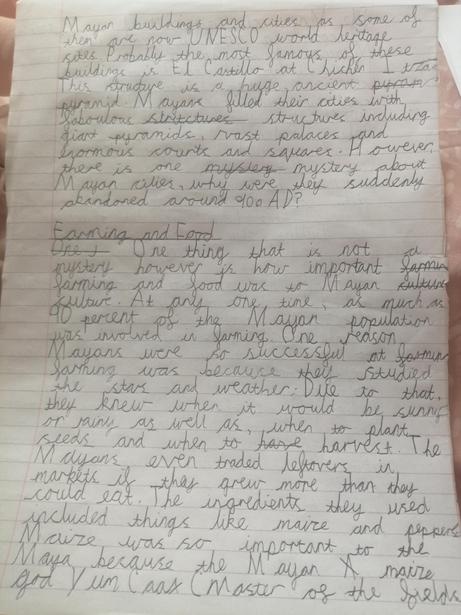 Mayan buildings and cities as some of
them are now UNESCO world heritage
sites. Probably the most famous of these
buildings is El Castillo at Chichen Itza.
This structure is a huge, ancient pyram
pyramid. Mayans filled their cities with
fabulous strictures structures including
giant pyramids, vast palaces and
enormous courts and squares. However,
there is one mystery mystery about
Mayan cities, why were they suddenly
abandoned around 900 AD?
Farming and Food
One t One thing that is not a
mystery however is how important farmin
farming and food was to Mayan culture
culture. At any one time, as much as
90 percent of the Mayan population
was involved in farming. One reason
Mayans were so successful at farmin
farming was because they studied
the stars and weather. Due to that,
they knew when it would be sunny
or rainy as well as, when to plant
seeds and when to have harvest. The
Mayans even traded leftovers in
markets if they grew more than they
could eat. The ingredients they used
included things like maize and peppers
Maize was so important to the
Maya because the Mayan maize
god Yum Caax (Master of the fields